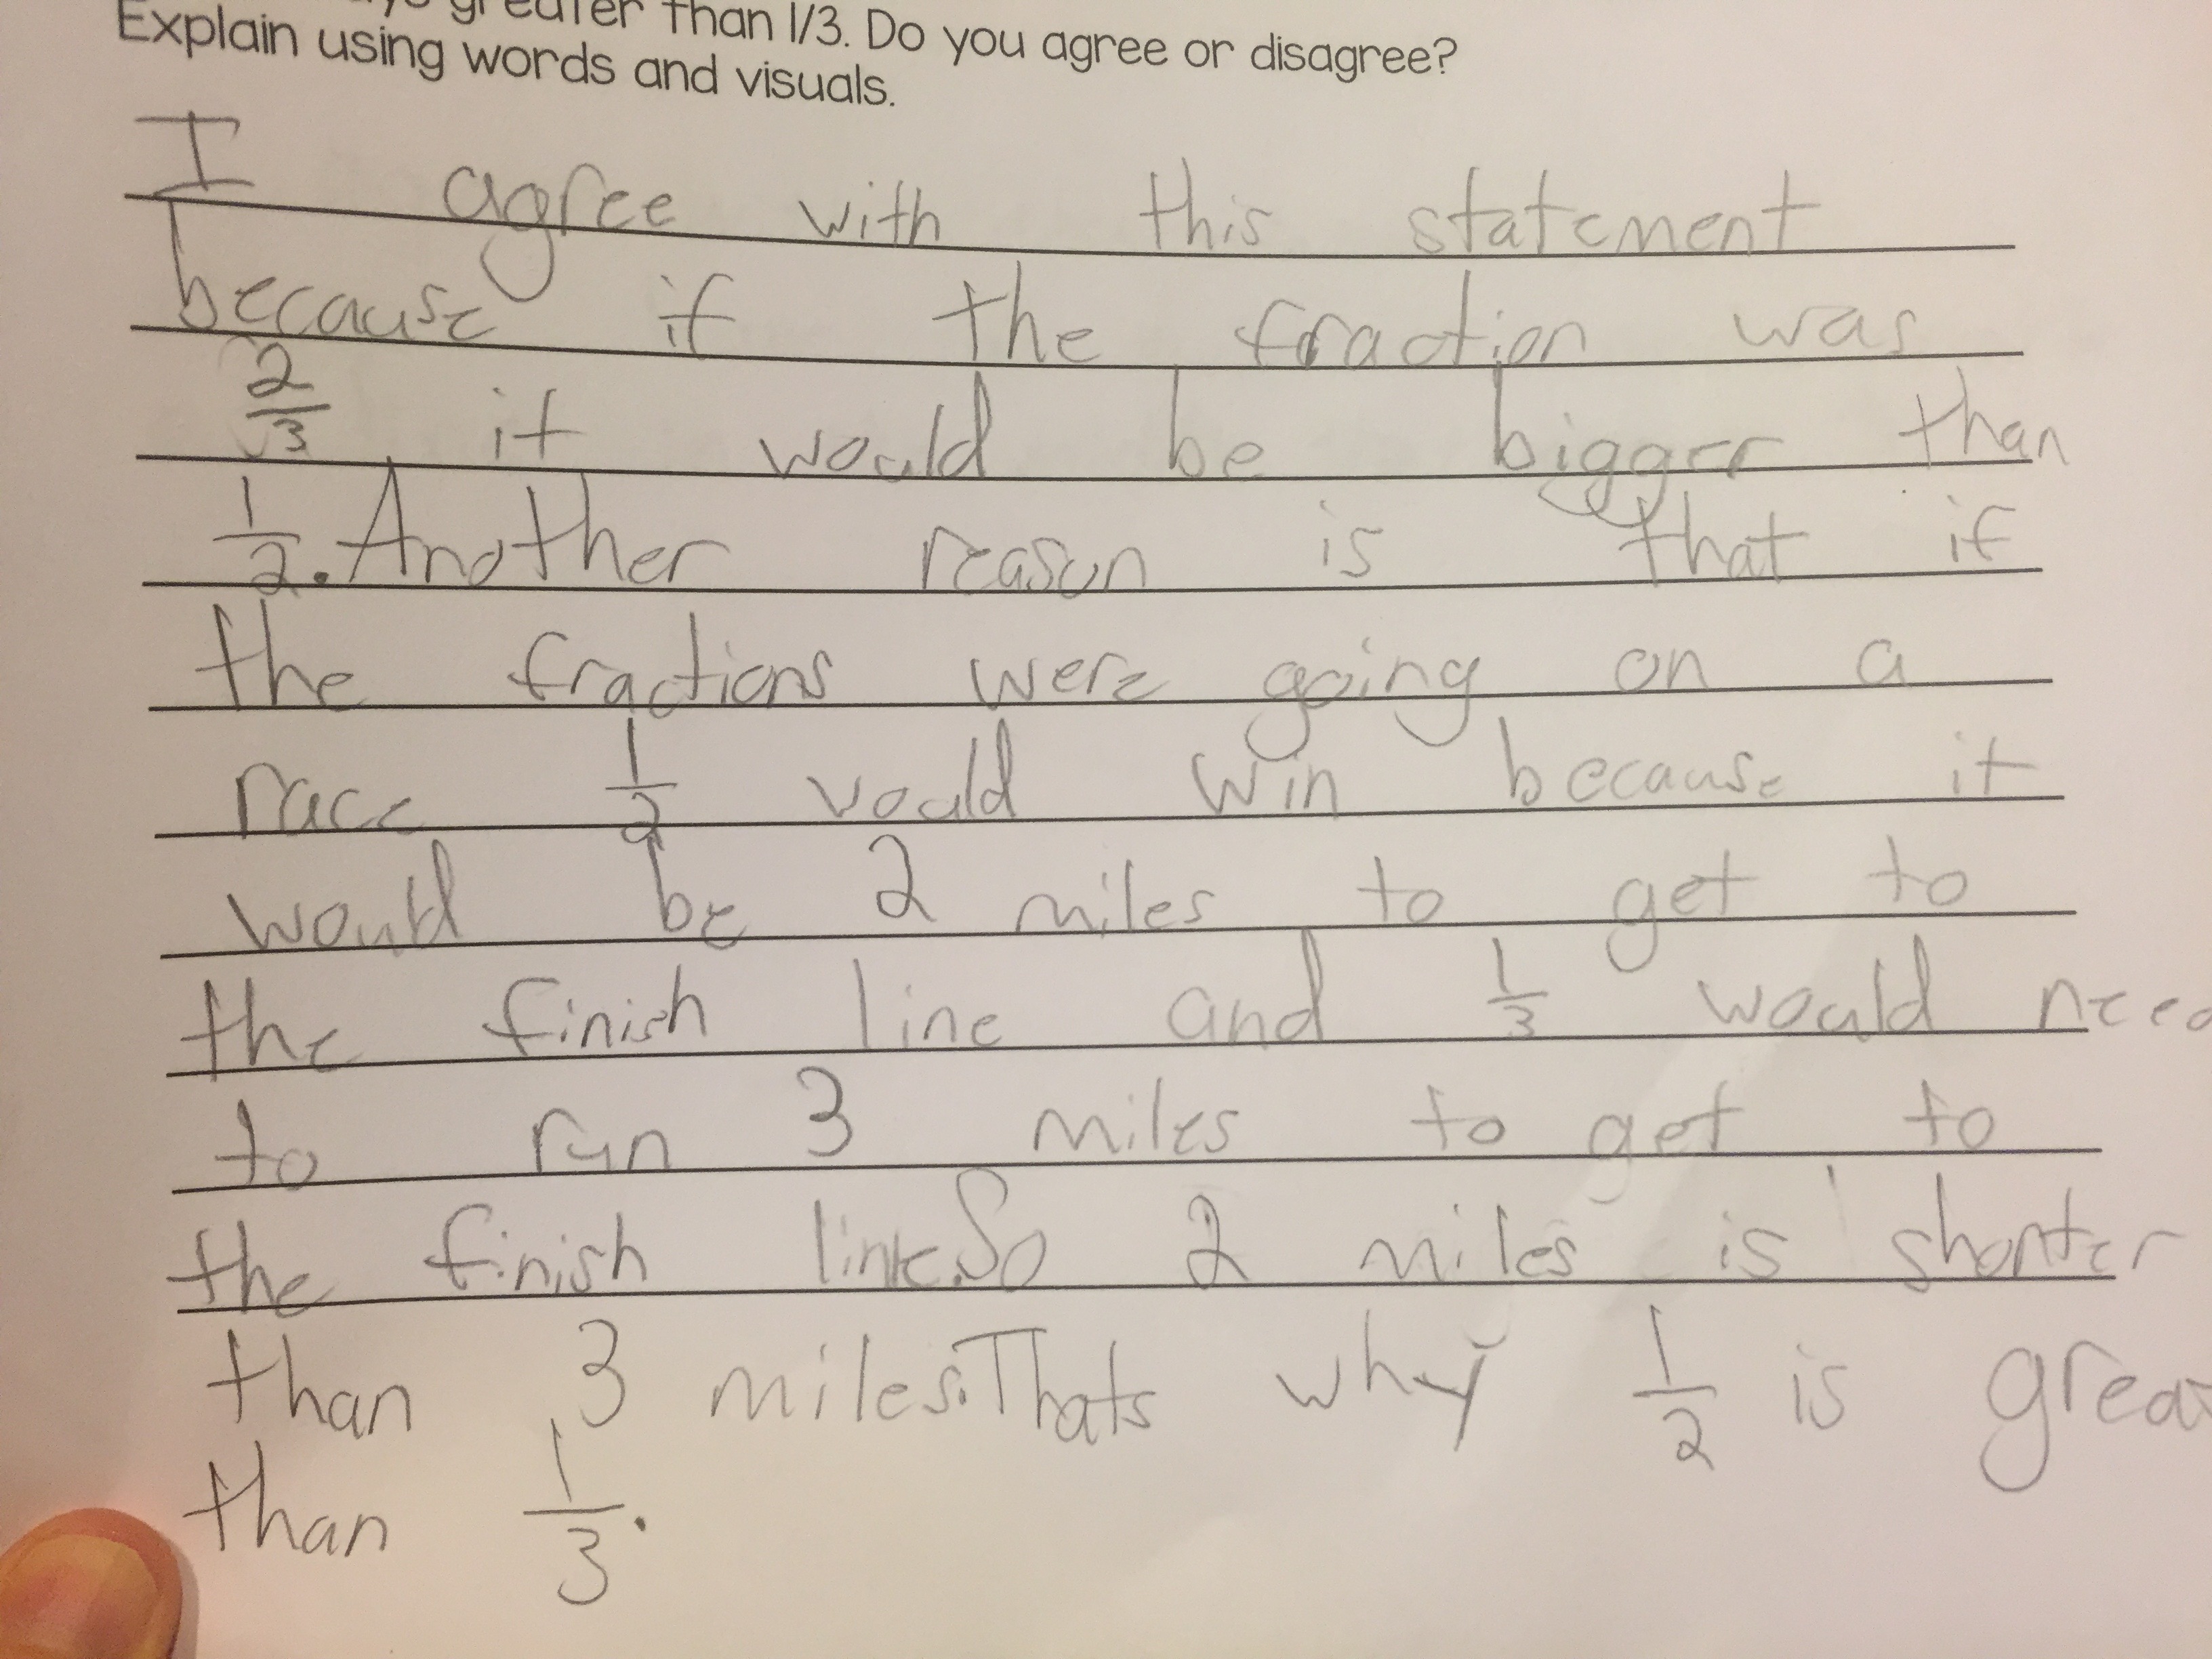 greater than 1/3. Do you agree or disagree?
Explain using words and visuals.
I agree with this statement
because if the fraction was
2/3 it would be bigger than
1/2. Another reason is that if
the fractions were going on a
race 1/2 vould win because it
would be 2 miles to get to
the finish line and 1/3 would need
to run 3 miles to get to
the finish line. So 2 miles is shorter
than 3 miles. Thats why 1/2 is grea
than 1/3.